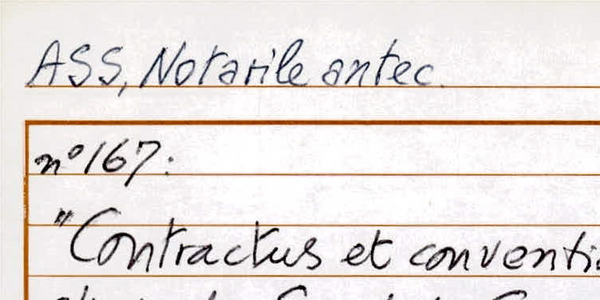 ASS, Notarile antec.
n° 167:
"Contractus et conventi